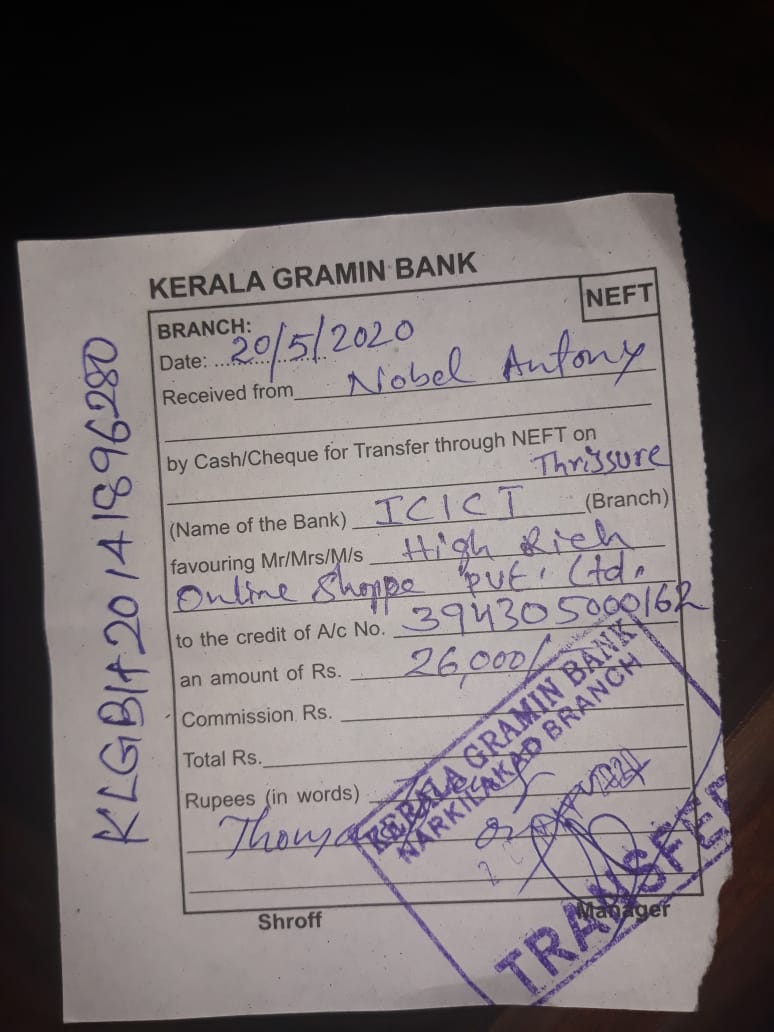 KERALA GRAMIN BANK
NEFT
BRANCH:
Date: 20/5/2020
Received from Nobel Antony
by Cash/Cheque for Transfer through NEFT on
Thrissure
(Name of the Bank) ICICI (Branch)
favouring Mr/Mrs/M/s High Rich
Online Shoppe pvt. Ltd.
to the credit of A/c No. 394305000162
an amount of Rs. 26,000/
Commission Rs.
Total Rs.
Rupees (in words)
Shroff
Manager
KERALA GRAMIN BANK
NARKILAKAD BRANCH
TRANSFER